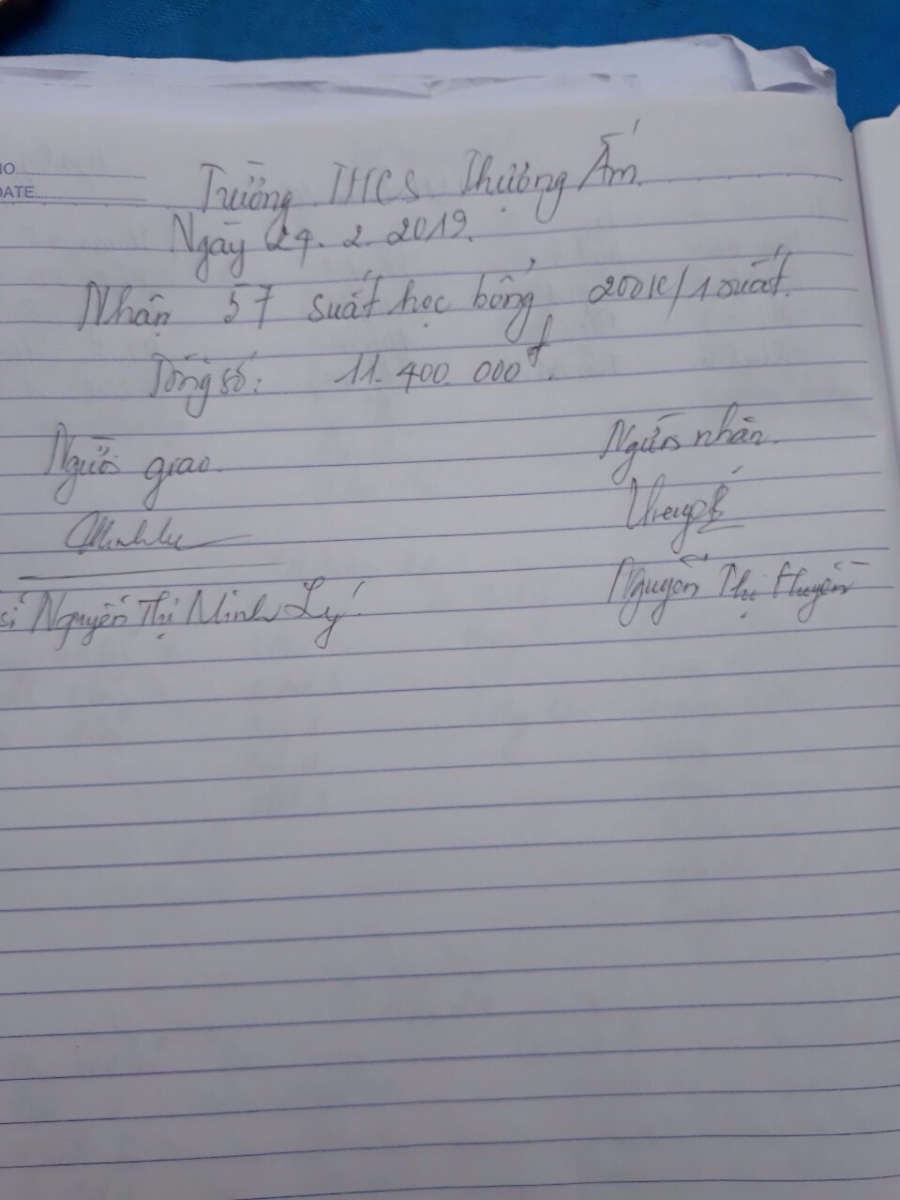 NO
DATE
Trường THCS Thượng Ấm
Ngày 24.2.2019.
Nhận 57 suất học bổng 200K/1 suất.
Tổng số: 11.400.000đ.
Người giao. Người nhận.
sĩ Nguyễn Thị Minh Lý Nguyễn Thị Huyền